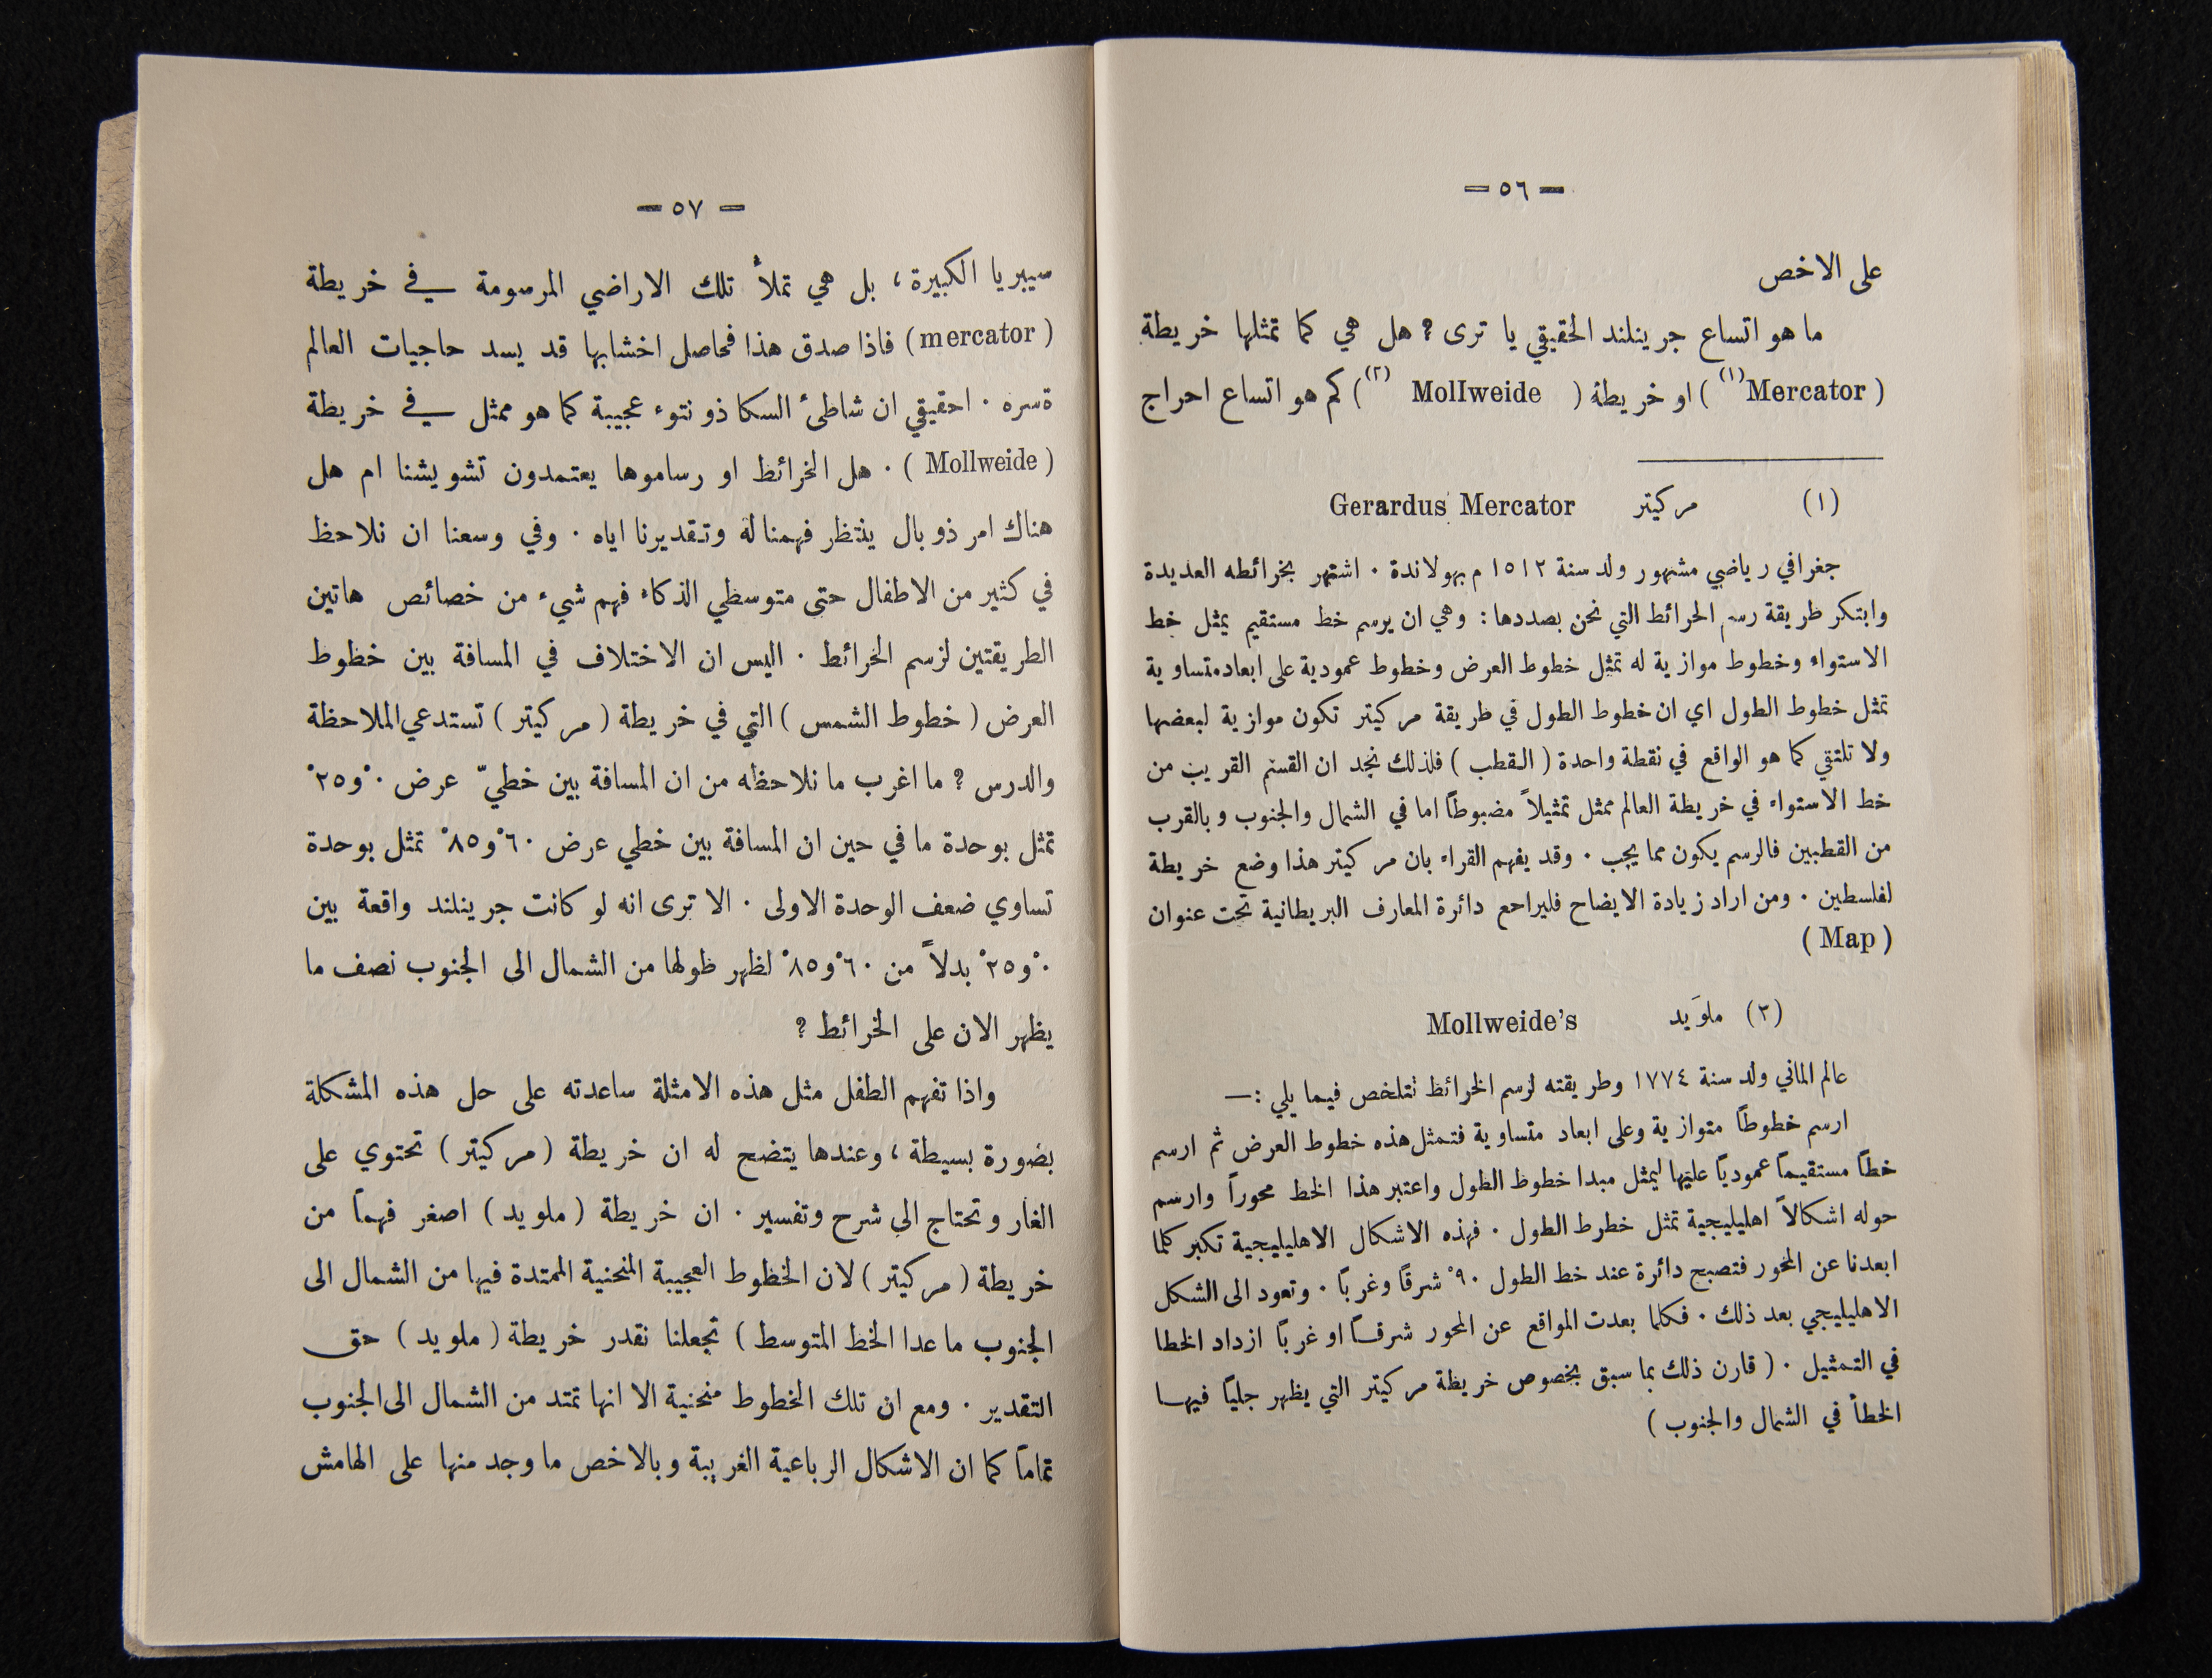 — ٥٦ —
على الاخص
ما هو اتساع جرينلند الحقيقي يا ترى ? هل هي كما تمثلها خريطة
( Mercator(١) ) او خريطة ( Mollweide (٢) ) كم هو اتساع احراج
(١) مركيتر Gerardus Mercator
جغرافي رياضي مشهور ولد سنة ١٥١٢ م بهولاندة . اشتهر بخرائطه العديدة
وابتكر طريقة رسم الخرائط التي نحن بصددها : وهي ان يرسم خط مستقيم يمثل خط
الاستواء وخطوط موازية له تمثل خطوط العرض وخطوط عمودية على ابعاد متساوية
تمثل خطوط الطول اي ان خطوط الطول في طريقة مركيتر تكون موازية لبعضها
ولا تلتقي كما هو الواقع في نقطة واحدة ( القطب ) فلذلك نجد ان القسم القريب من
خط الاستواء في خريطة العالم ممثل تمثيلاً مضبوطاً اما في الشمال والجنوب وبالقرب
من القطبين فالرسم يكون مما يجب . وقد يفهم القراء بان مركيتر هذا وضع خريطة
لفلسطين . ومن اراد زيادة الايضاح فليراجع دائرة المعارف البريطانية تحت عنوان
( Map )
(٢) ملوَيد Mollweide's
عالم الماني ولد سنة ١٧٧٤ وطريقته لرسم الخرائط تتلخص فيما يلي :—
ارسم خطوطاً متوازية وعلى ابعاد متساوية فتمثل هذه خطوط العرض ثم ارسم
خطاً مستقيماً عمودياً عليها ليمثل مبدا خطوط الطول واعتبر هذا الخط محوراً وارسم
حوله اشكالاً اهليليجية تمثل خطرط الطول . فهذه الاشكال الاهليليجية تكبر كلما
ابعدنا عن المحور فتصبح دائرة عند خط الطول ٩٠° شرقاً وغرباً . وتعود الى الشكل
الاهليليجي بعد ذلك . فكلما بعدت المواقع عن المحور شرقاً او غرباً ازداد الخطا
في التمثيل . ( قارن ذلك بما سبق بخصوص خريطة مركيتر التي يظهر جلياً فيها
الخطأ في الشمال والجنوب )
— ٥٧ —
سيبريا الكبيرة ، بل هي تملأ تلك الاراضي المرسومة في خريطة
( mercator ) فاذا صدق هذا فحاصل اخشابها قد يسد حاجيات العالم
ةسره . احقيقي ان شاطئ السكا ذو نتوء عجيبة كما هو ممثل في خريطة
( Mollweide ) . هل الخرائط او رساموها يعتمدون تشويشنا ام هل
هناك امر ذو بال ينتظر فهمنا له وتقديرنا اياه . وفي وسعنا ان نلاحظ
في كثير من الاطفال حتى متوسطي الذكاء فهم شيء من خصائص هاتين
الطريقتين لرسم الخرائط . اليس ان الاختلاف في المسافة بين خطوط
العرض ( خطوط الشمس ) التي في خريطة ( مركيتر ) تستدعي الملاحظة
والدرس ? ما اغرب ما نلاحظه من ان المسافة بين خطيّ عرض ٠° و٢٥°
تمثل بوحدة ما في حين ان المسافة بين خطي عرض ٦٠° و٨٥° تمثل بوحدة
تساوي ضعف الوحدة الاولى . الا ترى انه لو كانت جرينلند واقعة بين
٠° و٢٥° بدلاً من ٦٠° و٨٥° لظهر طولها من الشمال الى الجنوب نصف ما
يظهر الان على الخرائط ?
واذا تفهم الطفل مثل هذه الامثلة ساعدته على حل هذه المشكلة
بصورة بسيطة ، وعندها يتضح له ان خريطة ( مركيتر ) تحتوي على
الغار وتحتاج الى شرح وتفسير . ان خريطة ( ملويد ) اصغر فهماً من
خريطة ( مركيتر ) لان الخطوط العجيبة المنحنية الممتدة فيها من الشمال الى
الجنوب ما عدا الخط المتوسط ) تجعلنا نقدر خريطة ( ملويد ) حق
التقدير . ومع ان تلك الخطوط منحنية الا انها تمتد من الشمال الى الجنوب
تماماً كما ان الاشكال الرباعية الغريبة وبالاخص ما وجد منها على الهامش